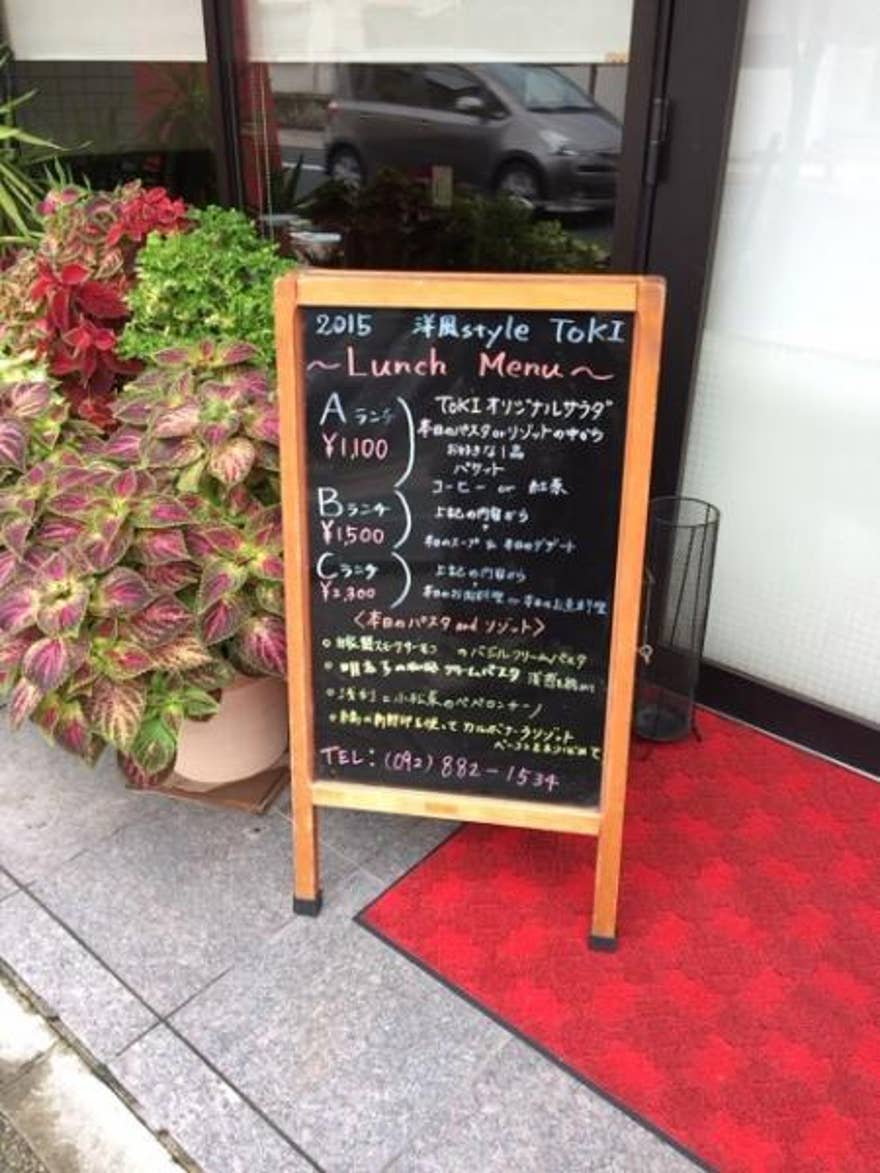 2015 洋風style TOKI
～Lunch Menu～
Aランチ
¥1,100
TOKIオリジナルサラダ
本日のパスタorリゾットの中から
お好きな1品
バケット
コーヒー or 紅茶
Bランチ
¥1,500
上記の内容から
本日のスープ & 本日のデザート
Cランチ
¥2,300
上記の内容から
本日のお肉料理 or 本日のお魚料理
〈本日のパスタ and リゾット〉
○ スモークサーモン のバジルクリームパスタ
○ 明太子の クリームパスタ
○ 小松菜のペペロンチーノ
○ 卵を使って カルボナーラリゾット
TEL:(092)882-1534